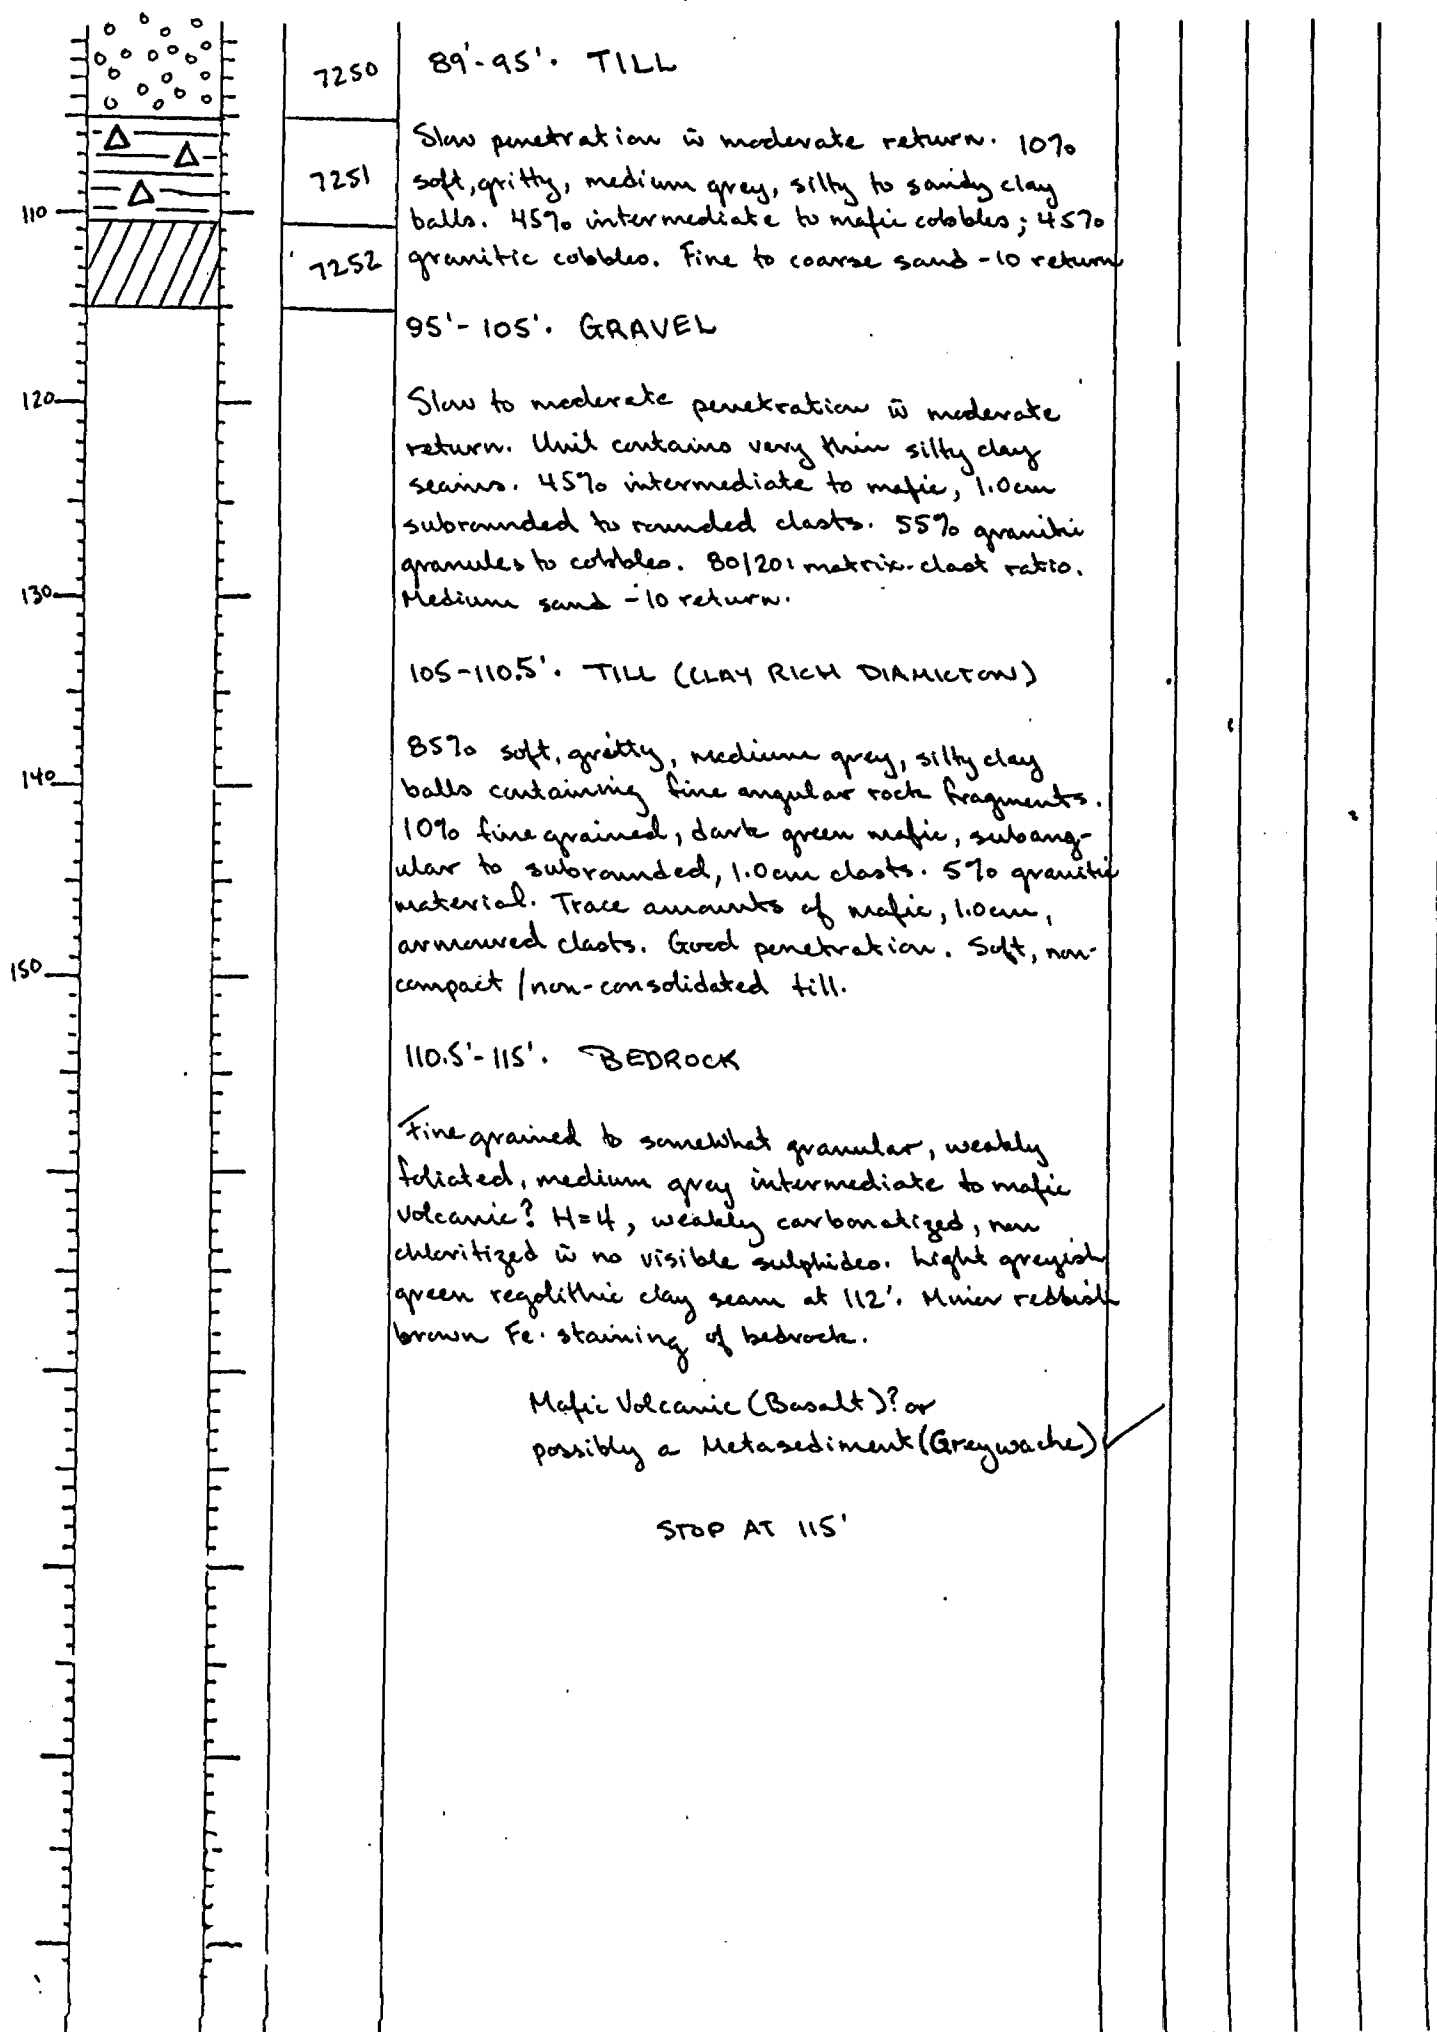 7250
89'-95'. TILL
7251
Slow penetration w̄ moderate return. 10%
soft, gritty, medium grey, silty to sandy clay
110
balls. 45% intermediate to mafic cobbles; 45%
7252
granitic cobbles. Fine to coarse sand -10 return
95'-105'. GRAVEL
120
Slow to moderate penetration w̄ moderate
return. Unit contains very thin silty clay
seams. 45% intermediate to mafic, 1.0cm
subrounded to rounded clasts. 55% granitic
granules to cobbles. 80/20: matrix-clast ratio.
130
Medium sand -10 return.
105-110.5'. TILL (CLAY RICH DIAMICTON)
85% soft, gritty, medium grey, silty clay
140
balls containing fine angular rock fragments.
10% fine grained, dark green mafic, subang-
ular to subrounded, 1.0cm clasts. 5% granitic
material. Trace amounts of mafic, 1.0cm,
armoured clasts. Good penetration. Soft, non-
150
compact/non-consolidated till.
110.5'-115'. BEDROCK
Fine grained to somewhat granular, weakly
foliated, medium grey intermediate to mafic
volcanic? H=4, weakly carbonatized, non
chloritized w̄ no visible sulphides. Light greyish
green regolithic clay seam at 112'. Minor reddish
brown Fe. staining of bedrock.
Mafic Volcanic (Basalt)? or
possibly a Metasediment (Greywacke)
STOP AT 115'